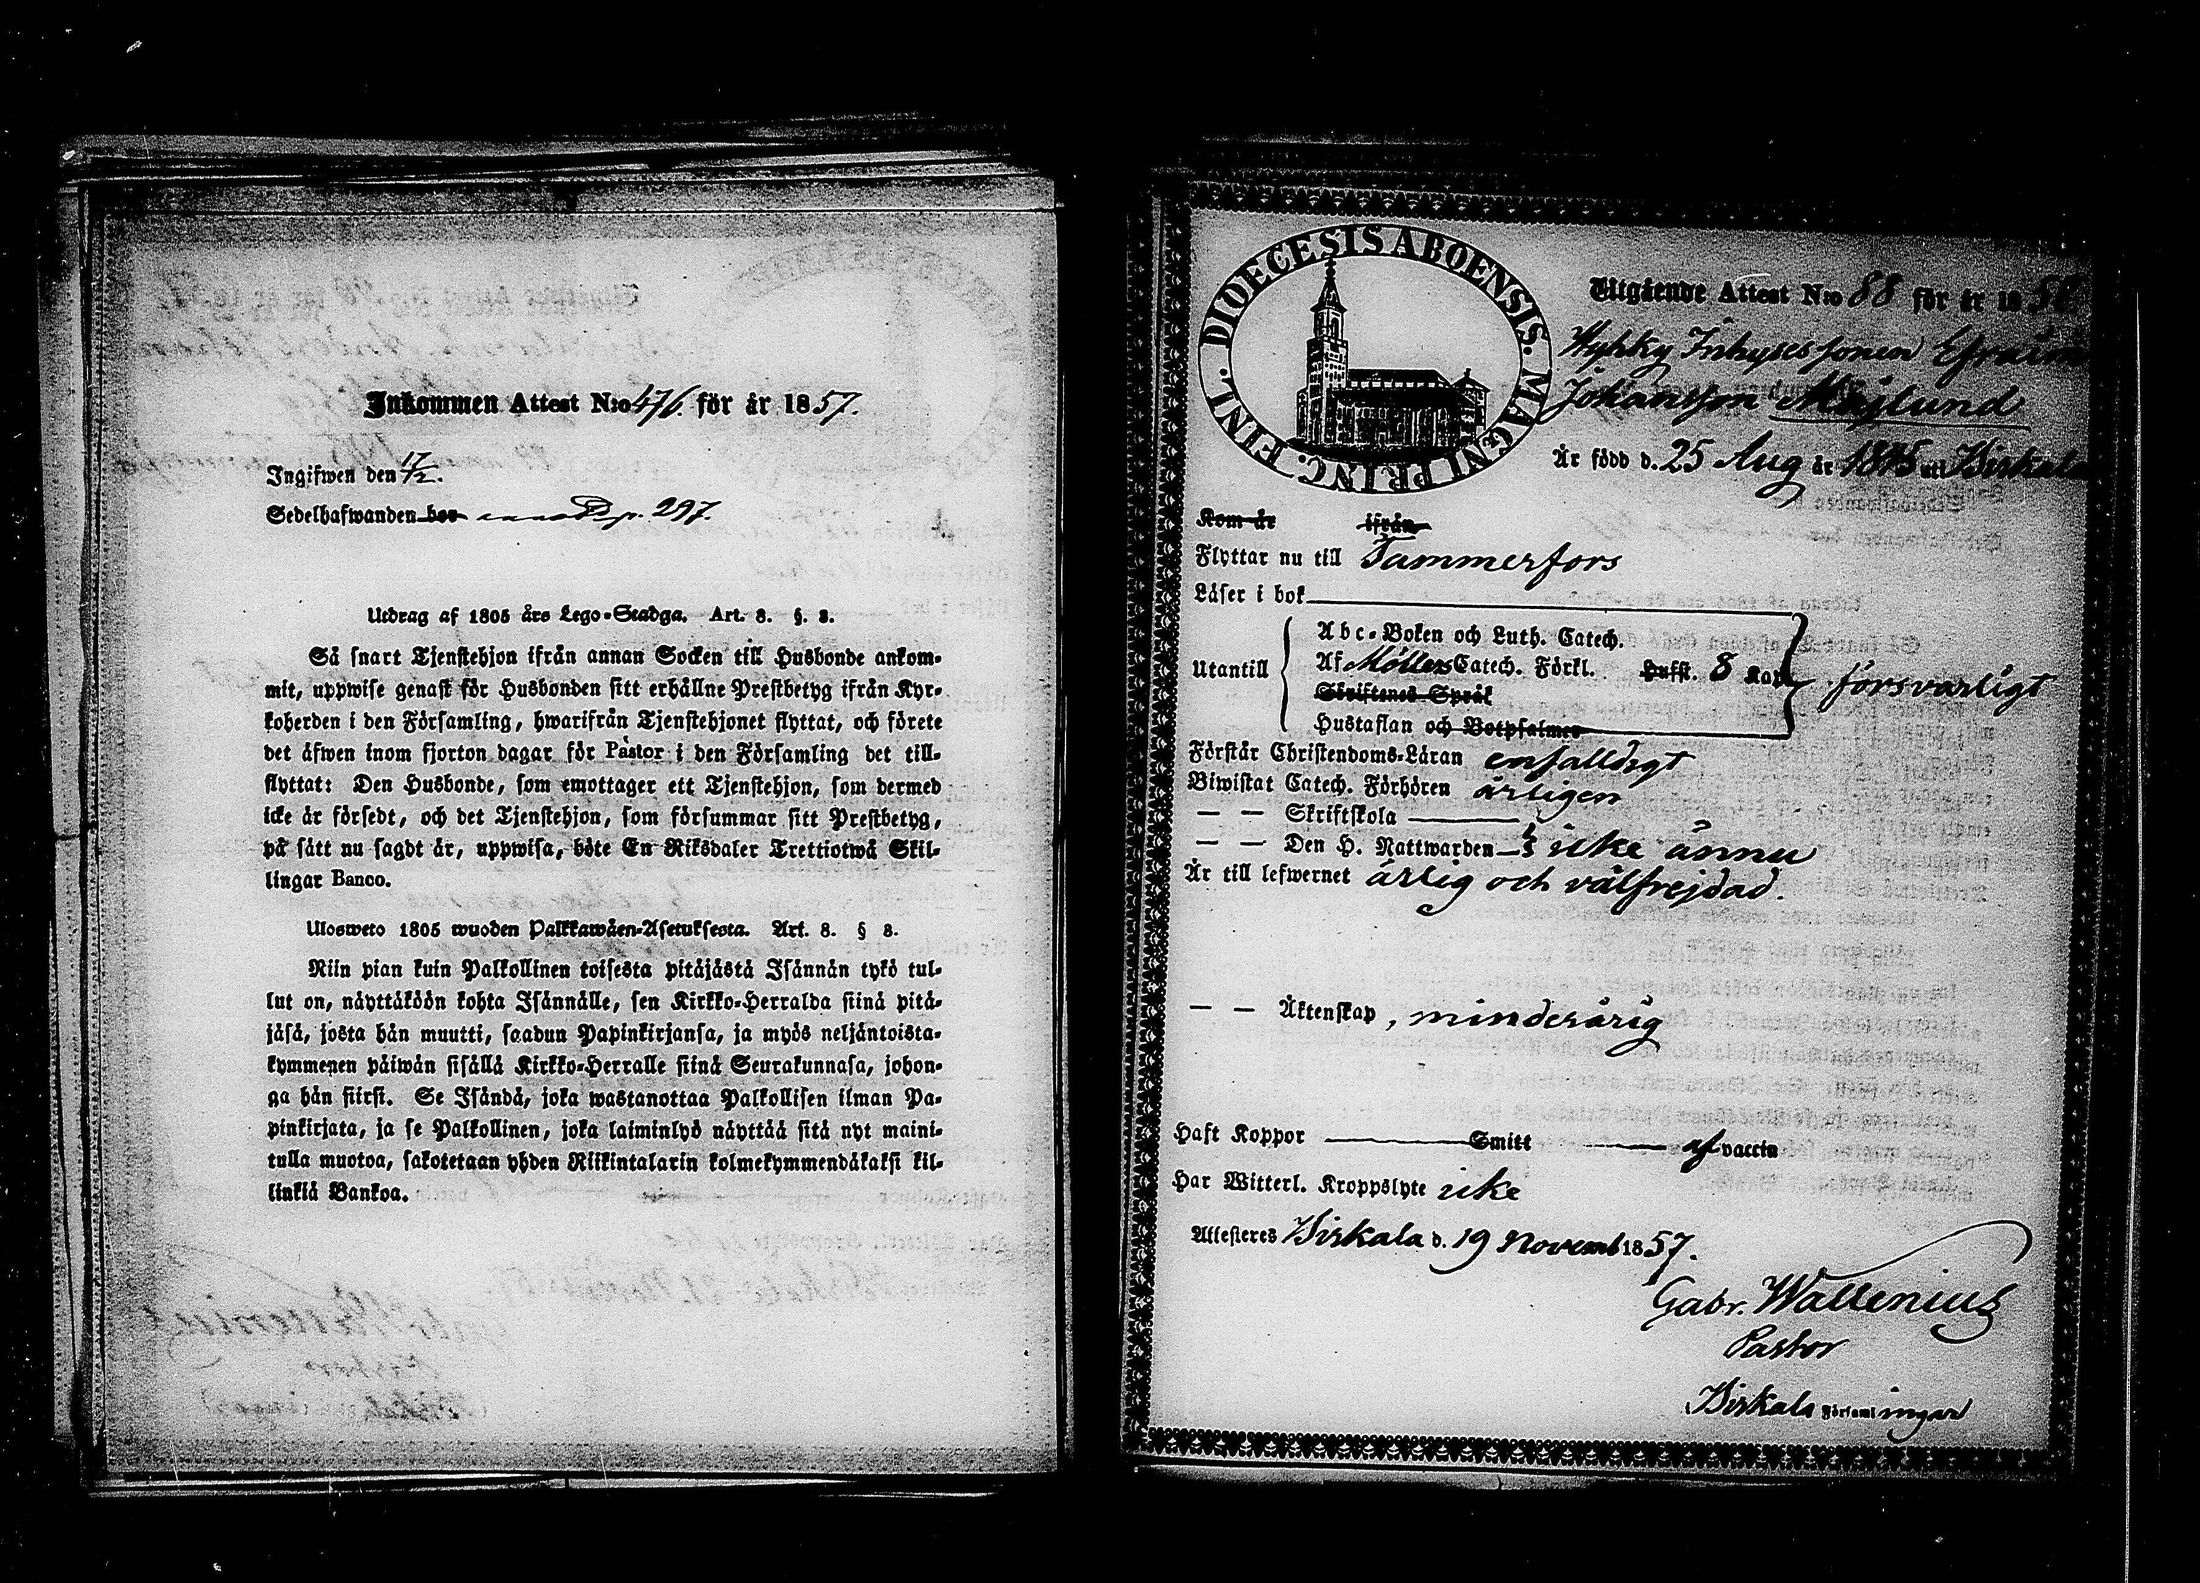 Inkommen Attest N:o 476. för år 1857.
Ingifwen den 17/2.
Sedelhafwanden bor p. 297.
Utdrag af 1805 års Lego-Stadga. Art. 8. §. 8.
Så snart Tjenstehjon ifrån annan Socken till Husbonde ankom-
mit, uppwise genast för Husbonden sitt erhållne Prestbetyg ifrån Kyr-
koherden i den Församling, hwarifrån Tjenstehjonet flyttat, och förete
det äfwen inom fjorton dagar för Pastor i den Församling det till-
flyttat: Den Husbonde, som emottager ett Tjenstehjon, som dermed
icke är försedt, och det Tjenstehjon, som försummar sitt Prestbetyg,
på sätt nu sagdt är, uppwisa, böte En Riksdaler Trettiotwå Skil-
lingar Banco.
Ulosweto 1805 wuoden Palkkawäen-Asetuksesta. Art. 8. § 8.
Niin pian kuin Palkollinen toisesta pitäjästä Isännän tykö tul-
lut on, näyttäköön kohta Isännälle, sen Kirkko-Herralda siinä pitä-
jäsä, josta hän muutti, saadun Papinkirjansa, ja myös neljäntoista-
kymmenen päiwän sisällä Kirkko-Herralle siinä Seurakunnasa, johon-
ga hän siirsi. Se Isändä, joka wastanottaa Palkollisen ilman Pa-
pinkirjata, ja se Palkollinen, joka laiminlyö näyttää sitä nyt maini-
tulla muotoa, sakotetaan yhden Riikintalarin kolmekymmendäkaksi kil-
linkiä Bankoa.
DIOECESIS ABOENSIS. MAGNI PRINC. FINL.
Utgående Attest N:o 88 för år 1858
Hyhky Inhyses sonen Efraim
Johansson Majlund
Är född d. 25 Aug år 1845 uti Birkala
Kom år ifrån
Flyttar nu till Tammerfors
Läser i bok
Abc-Boken och Luth. Catech.
Utantill Af Möllers Catech. Förkl. Hufst. 8 Kap försvarligt
Skriftenes Språk
Hustaflan och Botpsalmer
Förstår Christendoms-Läran enfalldigt
Biwistat Catech. Förhören årligen
— — Skriftskola
— — Den H. Nattwarden icke ännu
Är till lefwernet ärlig och välfrejdad.
— — Äktenskap, minderårig
Haft Koppor Smitt af vaccin
Har Witterl. Kroppslyte icke
Attesteres Birkala d. 19 Novemb 1857.
Gabr. Wallenius
Pastor
Birkala Församlingar